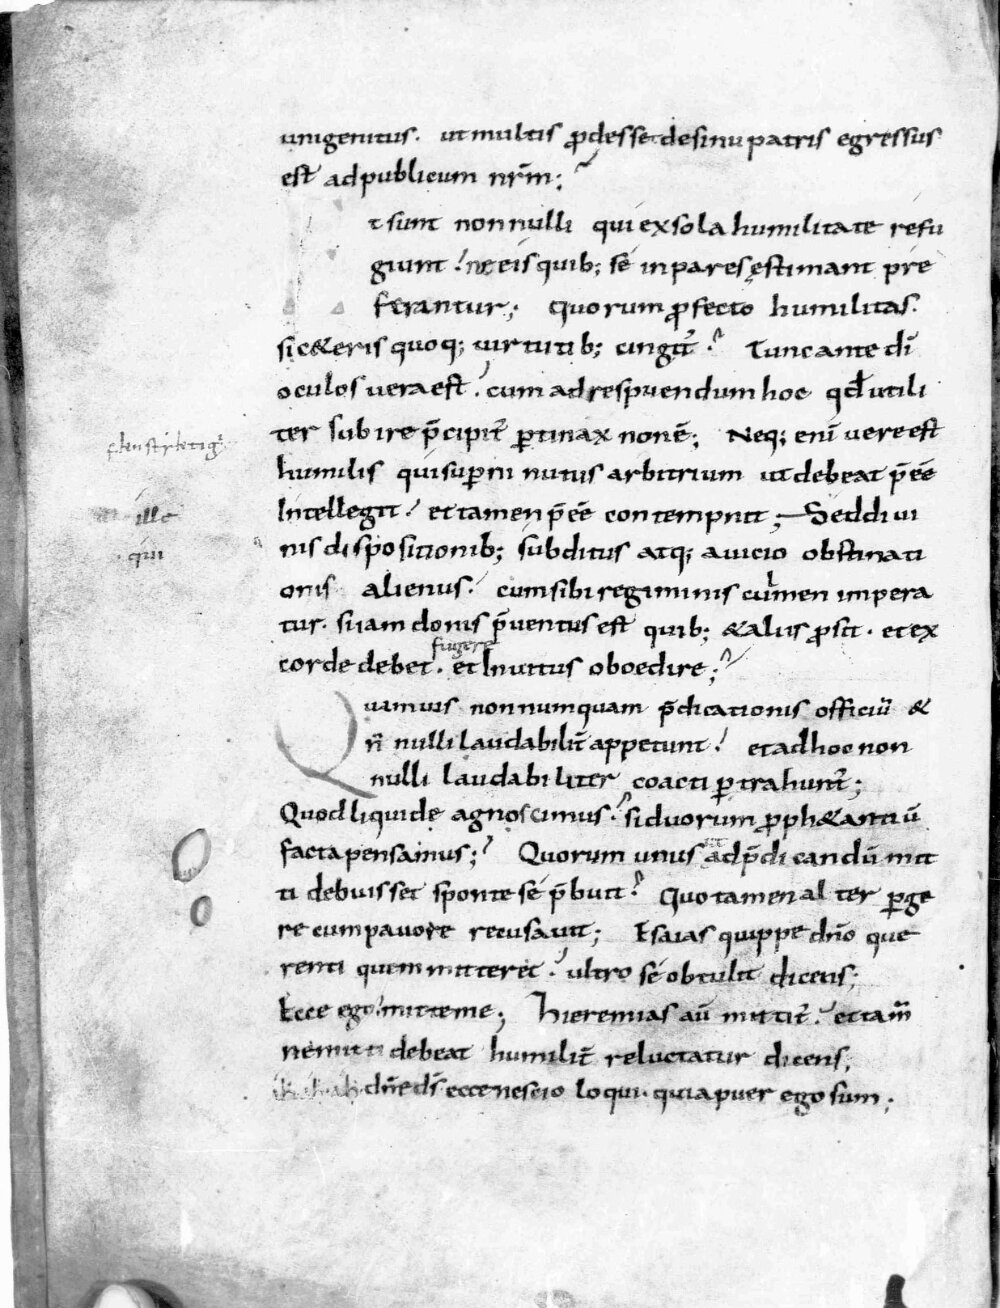 unigenitus. ut multis ꝓdesset desinu patris egressus
est ad publicum nr̄m;
t sunt non nulli qui ex sola humilitate refu
giunt. ne eis quib; se inpares ęstimant pre
ferantur; Quorum ꝓfecto humilitas.
si c&eris quoq; uirtutib; cingit̄. Tunc ante dī
oculos uera est. cum ad respuendum hoc qđ utili
ter subire p̄cipit̄ ꝑtinax non ē; Neq; enī uere est
humilis qui superni nutus arbitrium ut debeat p̄eē
Intellegit. et tamen p̄eē contempnit; Sed diui
nis dispositionib; subditus atq; a uicio obstinati
onis alienus. cum sibi regiminis culmen impera
tur. si iam donis p̄uentus est quib; & aliis ꝓsit. et ex
fugere
corde debet. et Inuitus oboedire;
Quamuis non numquam p̄dicationis officiū &
n̄ nulli laudabilit̄ appetunt. et ad hoc non
nulli laudabiliter coacti ꝑtrahunt̄;
Quod liquide agnoscimus. si duorum ꝓph&antiū
facta pensamus; Quorum unus ad p̄dicandū mit
ti debuisset sponte se p̄buit. Quo tamen alter ꝑge
re cum pauore recusauit; Esaias quippe dn̄o que
renti quem mitteret. ultro se obtulit dicens;
Ecce ego mitte me; Hieremias aū mittit̄. et tam̄
ne mitti debeat humilit̄ reluctatur dicens;
dn̄e ds̄ ecce nescio loqui. quia puer ego sum;
ille
qui